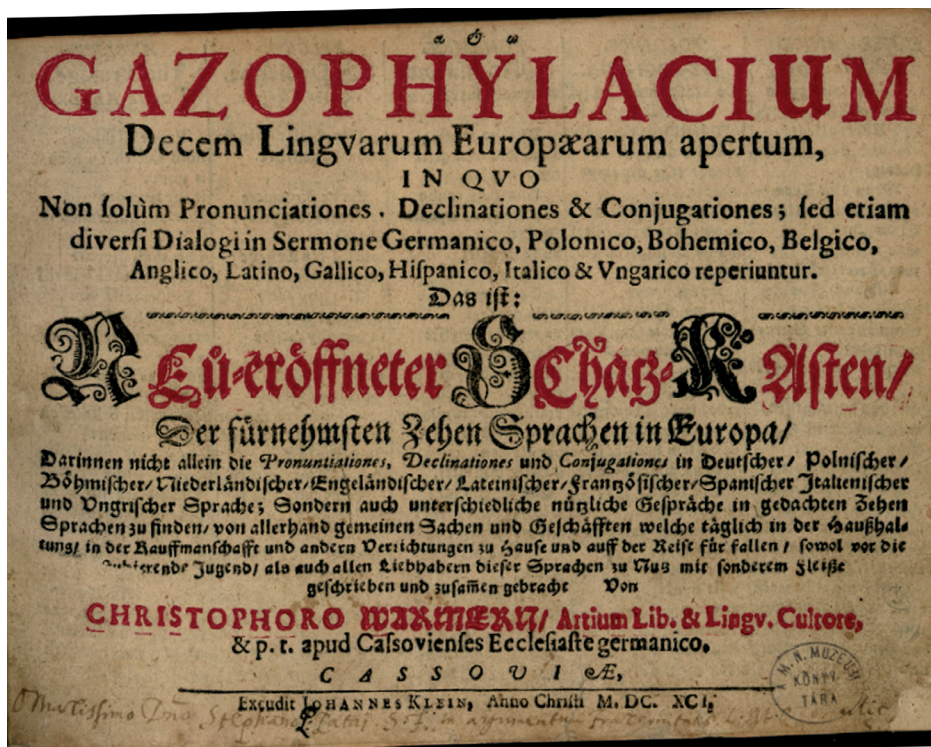 α & ω
GAZOPHYLACIUM
Decem Lingvarum Europæarum apertum,
IN QVO
Non ſolùm Pronunciationes, Declinationes & Conjugationes; ſed etiam
diverſi Dialogi in Sermone Germanico, Polonico, Bohemico, Belgico,
Anglico, Latino, Gallico, Hiſpanico, Italico & Vngarico reperiuntur.
Das iſt:
NEü-eröffneter SChatz-KAſten/
Der fürnehmſten Zehen Sprachen in Europa/
Darinnen nicht allein die Pronuntiationes, Declinationes und Conjugationes in Deutſcher/ Polniſcher/
Böhmiſcher/ Niederländiſcher/ Engeländiſcher/ Lateiniſcher/ Frantzöſiſcher/ Spaniſcher Italieniſcher
und Vngriſcher Sprache; Sondern auch unterſchiedliche nützliche Geſpräche in gedachten Zehen
Sprachen zu finden/ von allerhand gemeinen Sachen und Geſchäfften welche täglich in der Haußhal-
tung/ in der Kauffmanſchafft und andern Verrichtungen zu Hauſe und auff der Reiſe für fallen/ ſowol vor die
Jugend/ als auch allen Liebhabern dieſer Sprachen zu Nutz mit ſonderem Fleiße
geſchrieben und zuſam̃en gebracht Von
CHRISTOPHORO WARMERN/ Artium Lib. & Lingv. Cultore,
& p. t. apud Caſſovienſes Eccleſiaſte germanico.
CASSOVIÆ,
Excudit JOHANNES KLEIN, Anno Chriſti M. DC. XCI.
M. N. MUZEUM
KÖNYV
TÁRA